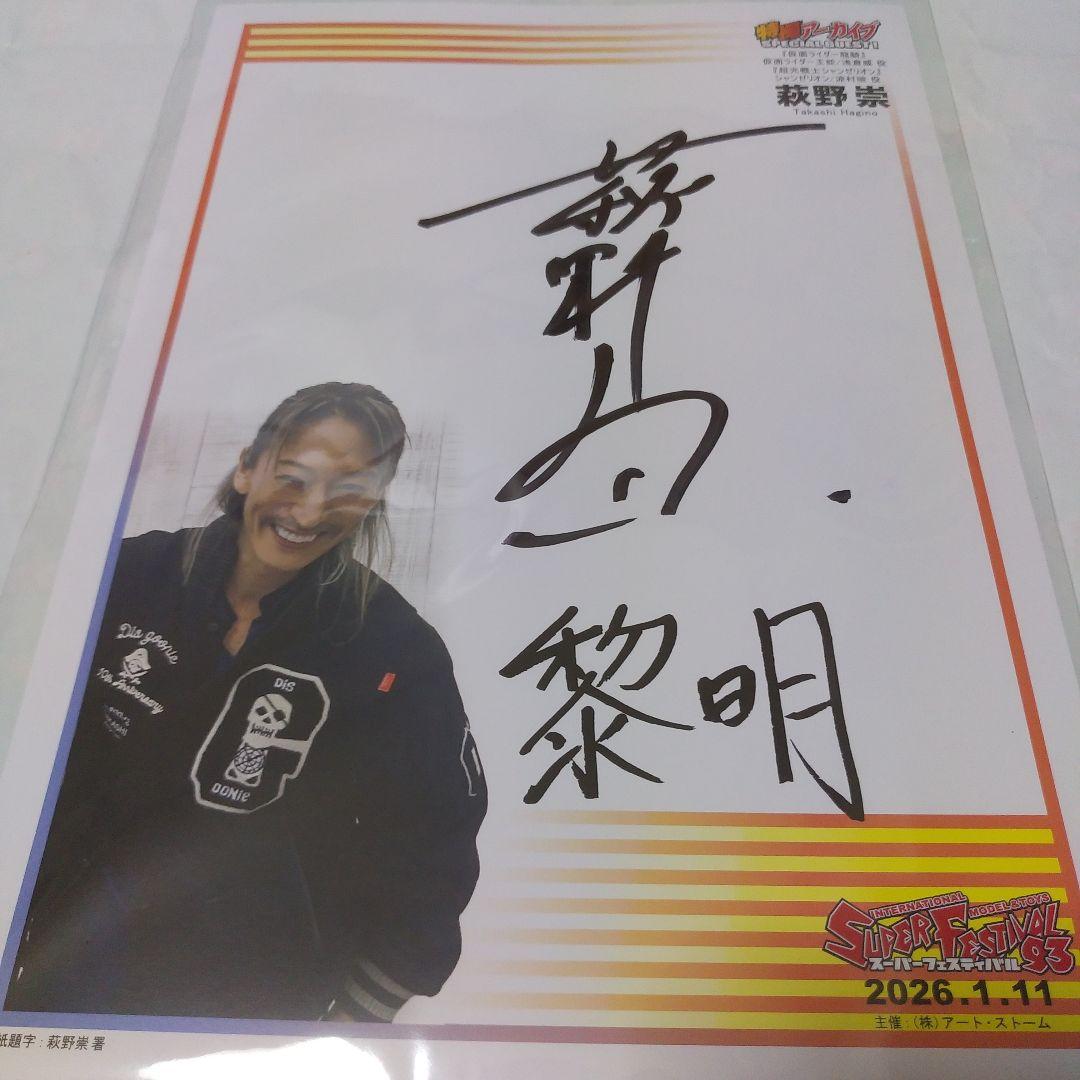 特撮アーカイブ
SPECIAL GUEST!
『仮面ライダー龍騎』
仮面ライダー王蛇/浅倉威 役
『超光戦士シャンゼリオン』
シャンゼリオン/涼村暁 役
萩野 崇
Takashi Hagino
萩野崇
黎明
Dis goonie
10th Anniversary
DiS
OONie
INTERNATIONAL MODEL & TOYS
SUPER FESTIVAL 93
スーパーフェスティバル
2026.1.11
主催：(株)アート・ストーム
紙題字：萩野崇 署